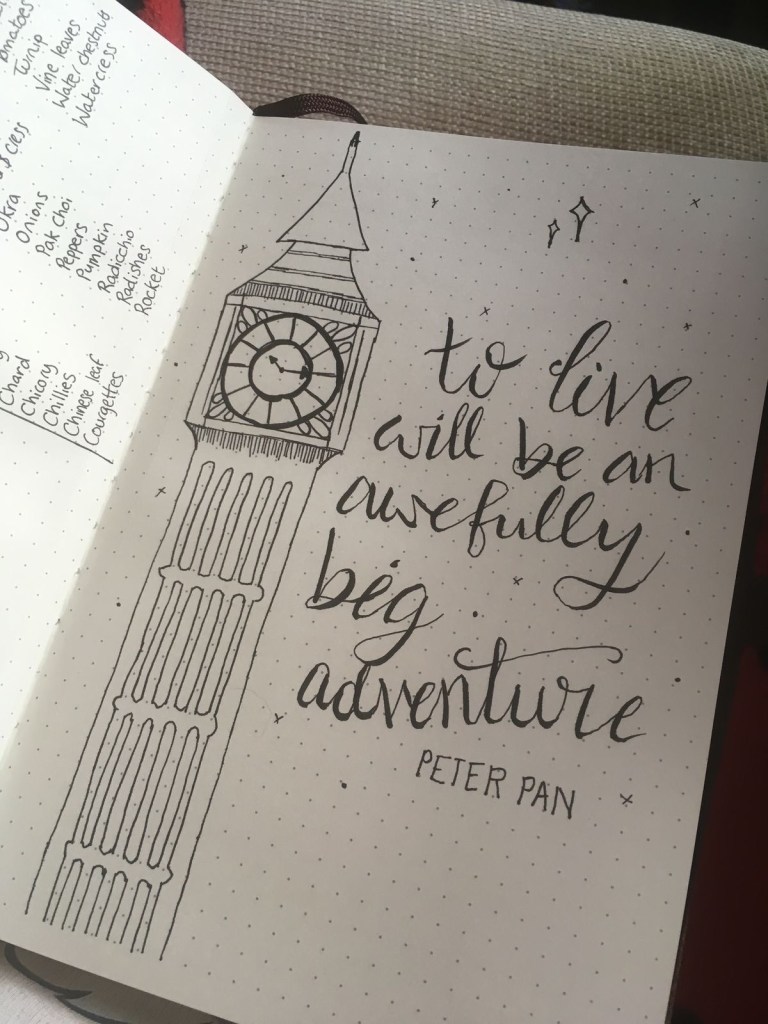 Turnip
Vine leaves
Water chestnut
Watercress
cress
Okra
Onions
Pak Choi
Peppers
Pumpkin
Radiccho
Radishes
Rocket
Chard
Chicory
Chillies
Chinese leaf
Courgettes
to live
will be an
awefully
big
adventure
PETER PAN